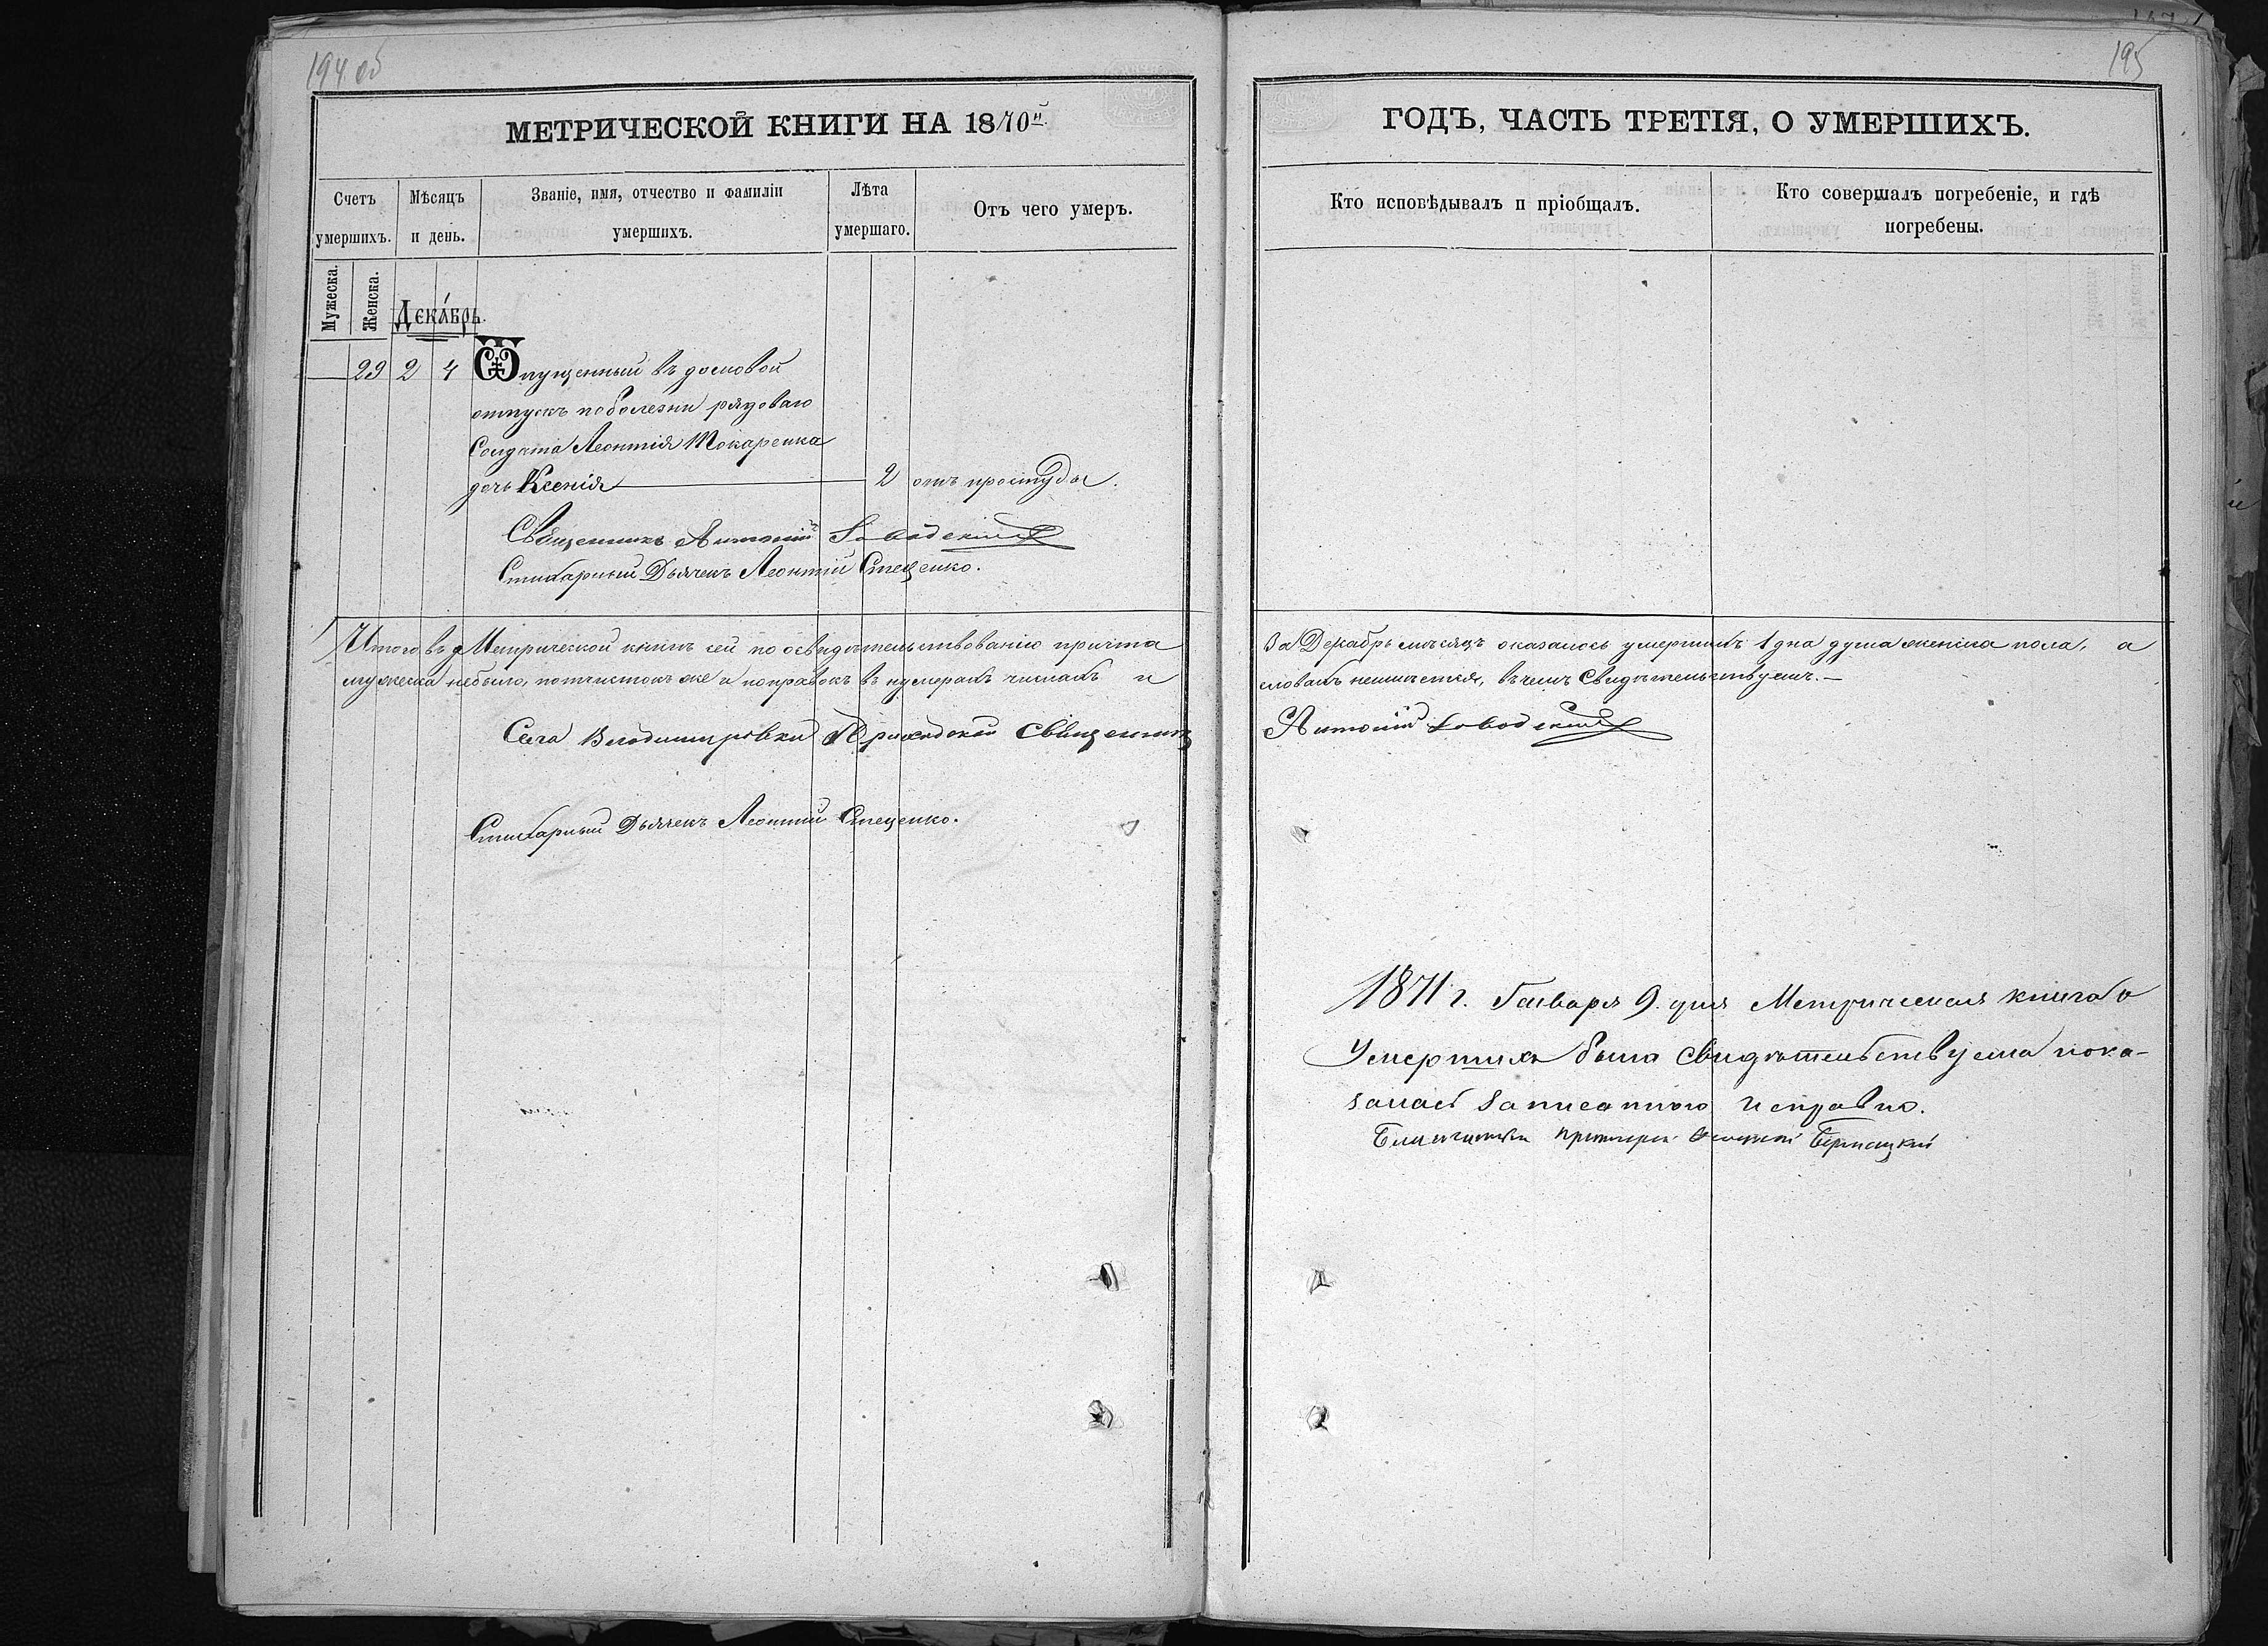 194 об
195
МЕТРИЧЕСКОЙ КНИГИ НА 1870й
ГОДЪ, ЧАСТЬ ТРЕТІЯ, О УМЕРШИХЪ.
Счетъ умершихъ.
Мѣсяцъ и день.
Званіе, имя, отчество и фамиліи умершихъ.
Лѣта умершаго.
Отъ чего умеръ.
Кто исповѣдывалъ и пріобщалъ.
Кто совершалъ погребеніе, и гдѣ погребены.
Мужеска.
Женска.
Декабрь.
— 29 2 4 Ѿпущенный въ домовой
отпускъ поболезни рядоваго
Солдата Леонтія Токаренка
дочь Ксенія — 2 отъ простуды.
Священникъ Антоній
Стихарный Дьячекъ Леонтій Стеценко.
Итого въ Метрической книгѣ сей по освидѣтельствованію причта
За Декабрь мѣсяцъ оказалось умершихъ 1дна душа женска пола, а
мужеска небыло, почистокъ же и поправокъ въ нумерахъ числахъ и
словахъ неимѣется, въ чемъ Свидѣтельствуемъ. —
Села Володимировки Приходской Священникъ
Антоній
Стихарный Дьячекъ Леонтій Стеценко.
1871 г. Генваря 9. дня Метрическая книга о
Умершихъ была свидѣтельствуема пока-
залась записанною исправно.